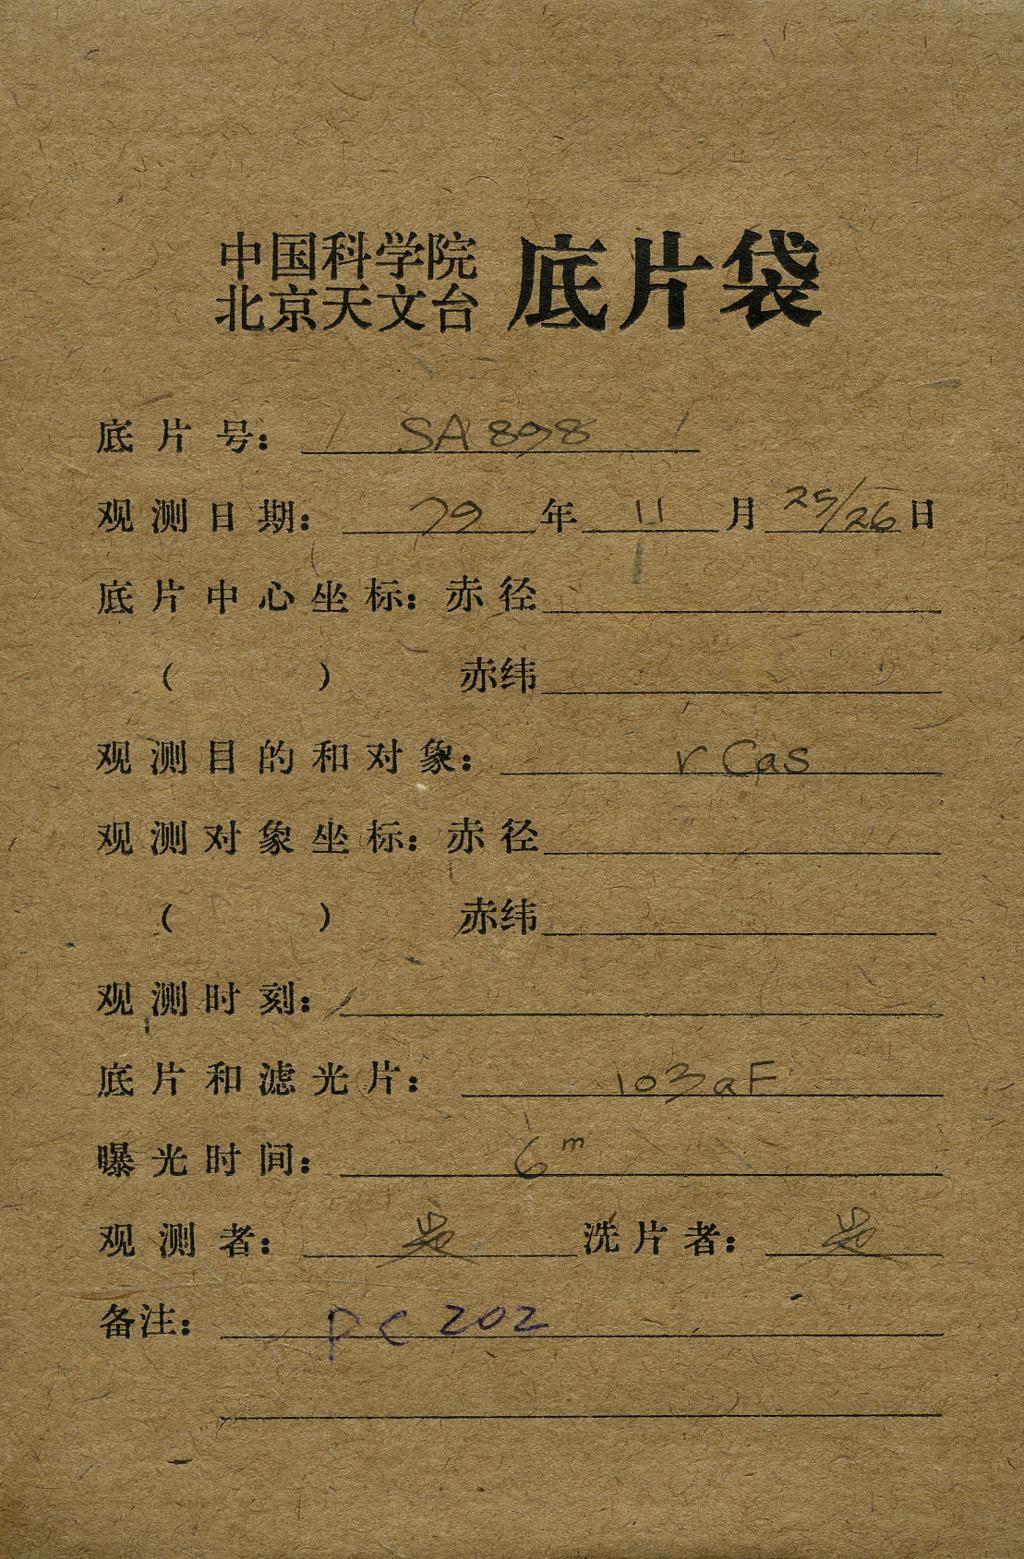 中国科学院
北京天文台 底片袋
底片号: SA898
观测日期: 79 年 11 月 25/26 日
底片中心坐标: 赤径
( ) 赤纬
观测目的和对象: r Cas
观测对象坐标: 赤径
( ) 赤纬
观测时刻:
底片和滤光片: 103aF
曝光时间: 6m
观测者: 洗片者:
备注: PC 202